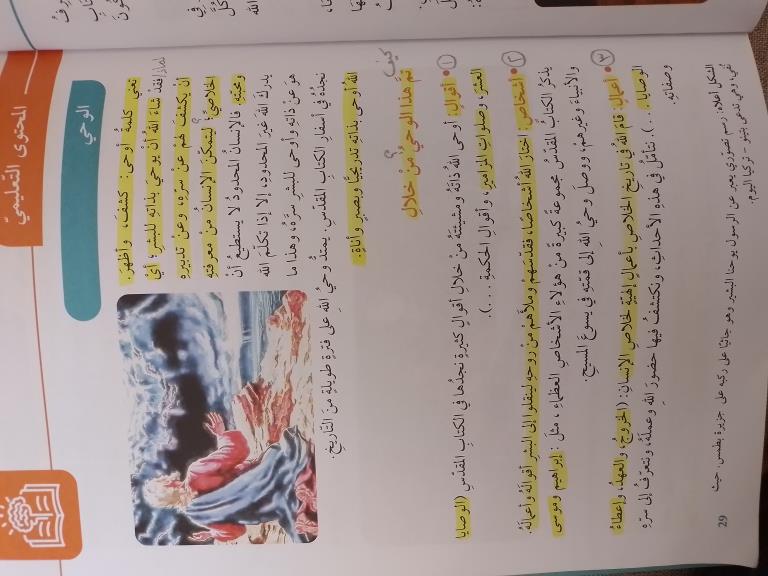 المحتوى التعليمي
الوحي
تعني كلمةُ أوحى: كشفَ، وأظهرَ.
لماذا
فقد شاءَ اللهُ أن يوحيَ بذاتِهِ للبشرِ؛ أيْ
أنْ يكشفَ لهم عنْ سرّهِ، وعنْ تدابيرِهِ
الخلاصيّةِ؛ ليتمكّنَ الإنسانُ منْ معرفتِهِ
ومحبّتِهِ. فالإنسانُ المحدودُ لا يستطيعُ أنْ
يدركَ اللهَ غيرَ المحدودِ، إلا إذا تكلّمَ اللهُ
هوَ عنْ ذاتِهِ وأوحى للبشرِ سرَّهُ، وهذا ما
نجدُهُ في أسفارِ الكتابِ المقدّسِ. يمتدُّ وحيُ اللهِ على فترةٍ طويلةٍ منَ التّاريخِ.
اللهُ أوحى بذاتِهِ تدريجيًّا وبصبرٍ وأناةٍ.
كيف
تمَّ هذا الوحيُ منْ خلالِ
١ • أقوالٍ: أوحى اللهُ ذاتَهُ ومشيئتَهُ منْ خلالِ أقوالٍ كثيرةٍ نجدُها في الكتابِ المقدّسِ (الوصايا
العشرِ، وصلواتِ المزاميرِ، وأقوالِ الحكمةِ ...).
٢ • أشخاصٍ: اختارَ اللهُ أشخاصًا، فقدّسَهمْ وملأَهمْ منْ روحِهِ لينقلوا إلى البشرِ أقوالَهُ وأعمالَهُ.
يذكرُ الكتابُ المقدّسُ مجموعةً كبيرةً منْ هؤلاءِ الأشخاصِ العظماءِ، مثلَ: إبراهيمَ وموسى
والأنبياءِ وغيرِهمْ، ووصلَ وحيُ اللهِ إلى قمّتِهِ في يسوعَ المسيحِ.
٣ • أعمالٍ: قامَ اللهُ في تاريخِ الخلاصِ بأعمالٍ إلهيّةٍ لخلاصِ الإنسانِ: (الخروجُ، والعهدُ، وإعطاءُ
الوصايا ...). نتأمّلُ في هذهِ الأحداثِ، ونكتشفُ فيها حضورَ اللهِ وعملَهُ، ونتعرّفُ إلى سرّهِ
وصفاتِهِ.
الشكل أعلاه: رسم تصوّري يعبر عن الرسول يوحنا البشير وهو جاثيًا على ركبه على جزيرة بطمس، حيث
نُفي، وهي تدعى بتينو - تركيا اليوم.
29